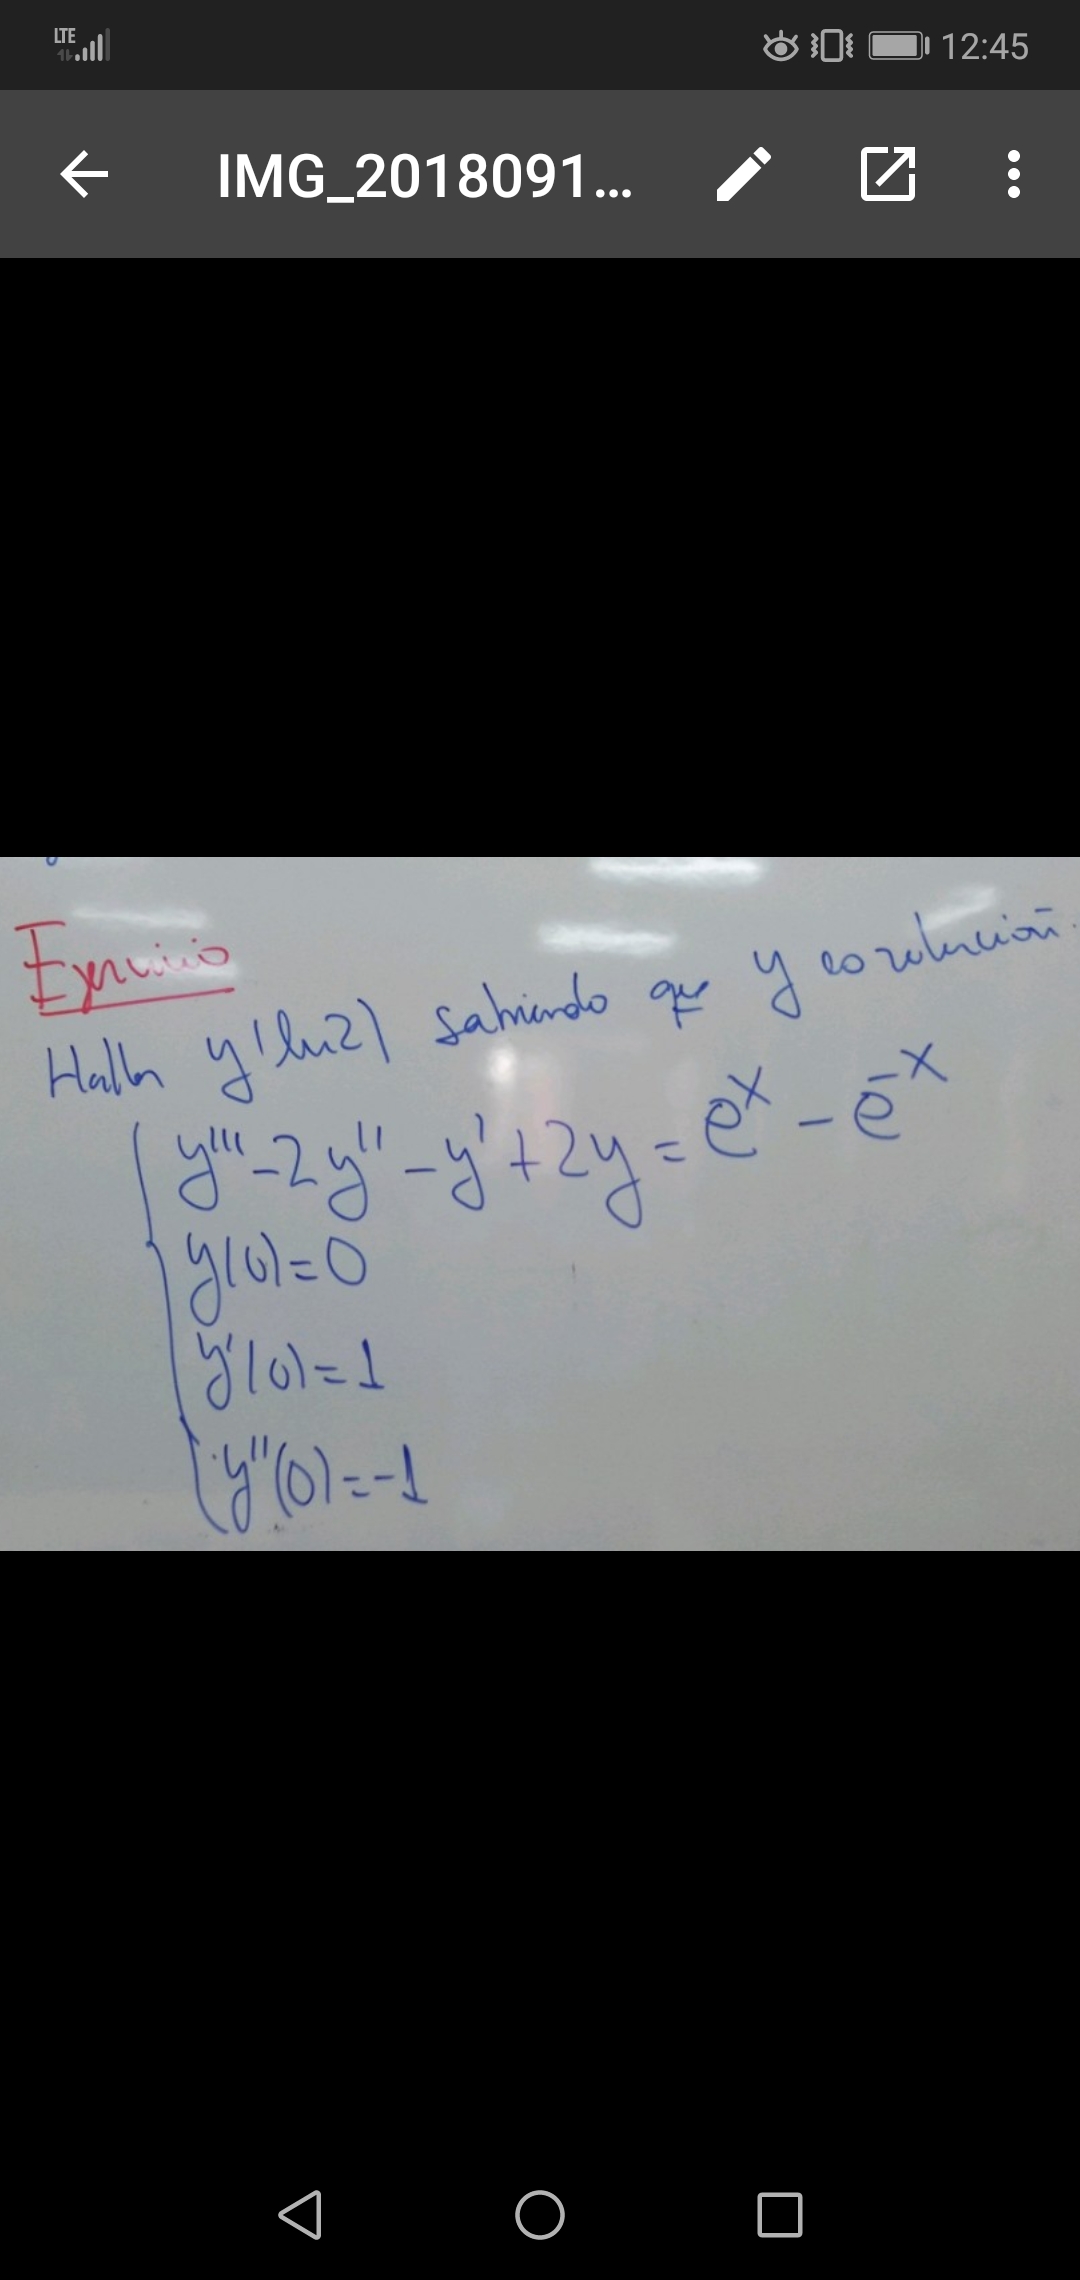 LTE 12:45
IMG_2018091...
Ejercicio
Hallar y'(ln2) sabiendo que y es solución
y''' - 2y'' - y' + 2y = e^x - e^-x
y(0) = 0
y'(0) = 1
y''(0) = -1